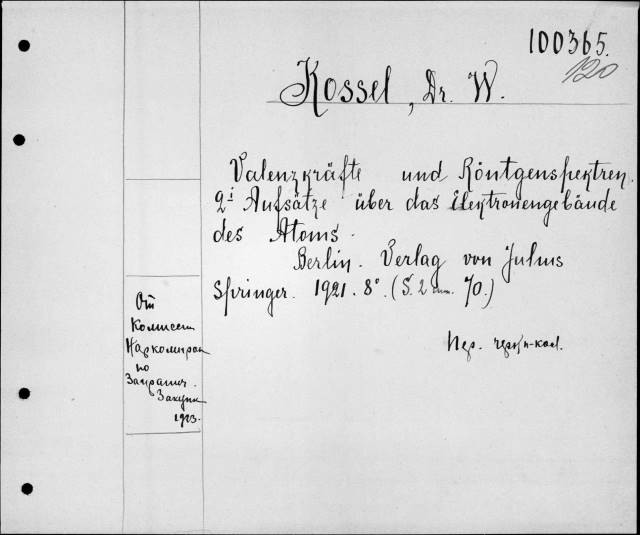 100365.
120
Kossel, Dr. W.
Valenzkräfte und Röntgenspektren.
2i Aufsätze über das Elektronengebäude
des Atoms.
Berlin. Verlag von Julius
Springer. 1921. 8° (S. 2 70.)
От
Комиссии
по
Загранич.
Закупк
1923.
Пер.